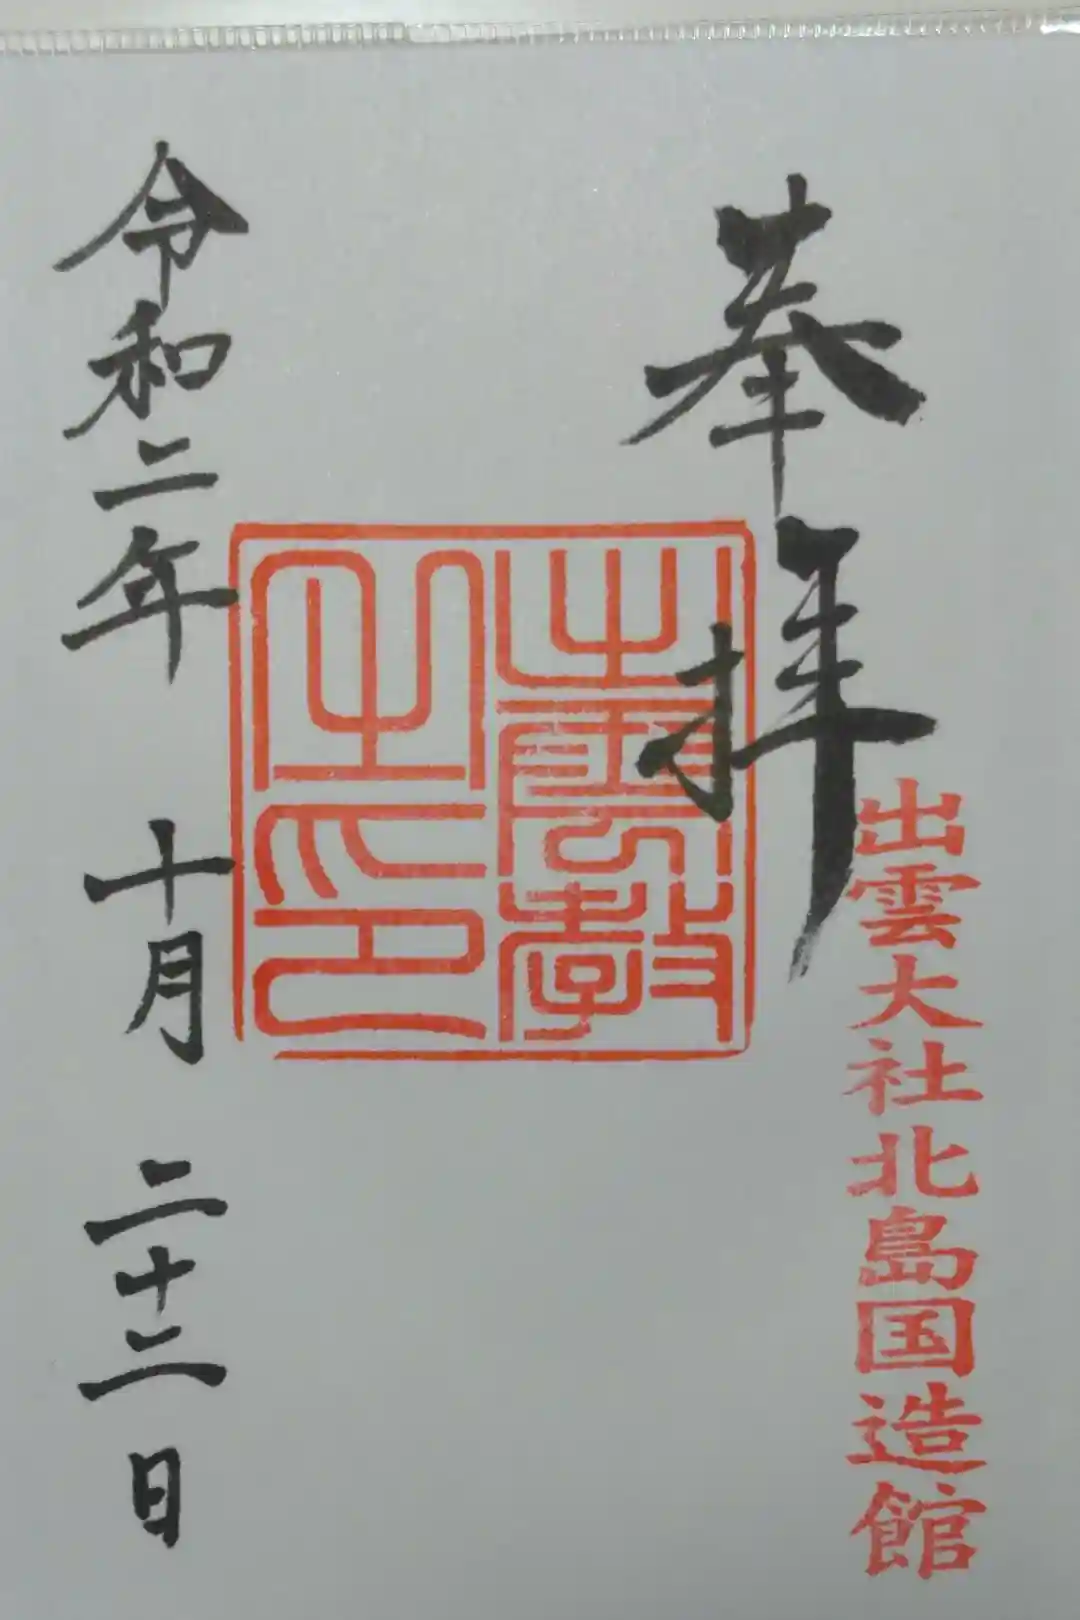 奉拝
出雲大社北島国造館
出雲教
之印
令和二年 十月 二十二日